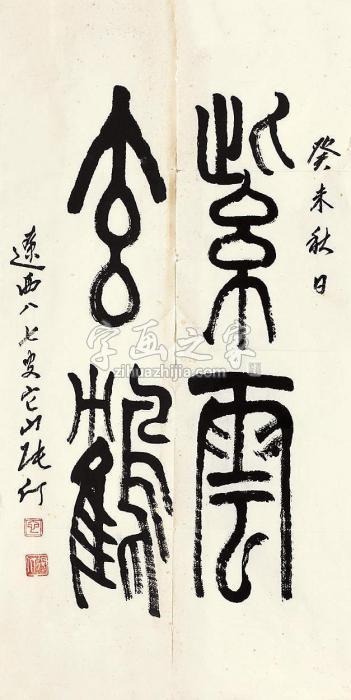 癸未秋日
紫雲
玄鶴
遼西八七叟它山張仃
字画之家
zihuazhijia.com